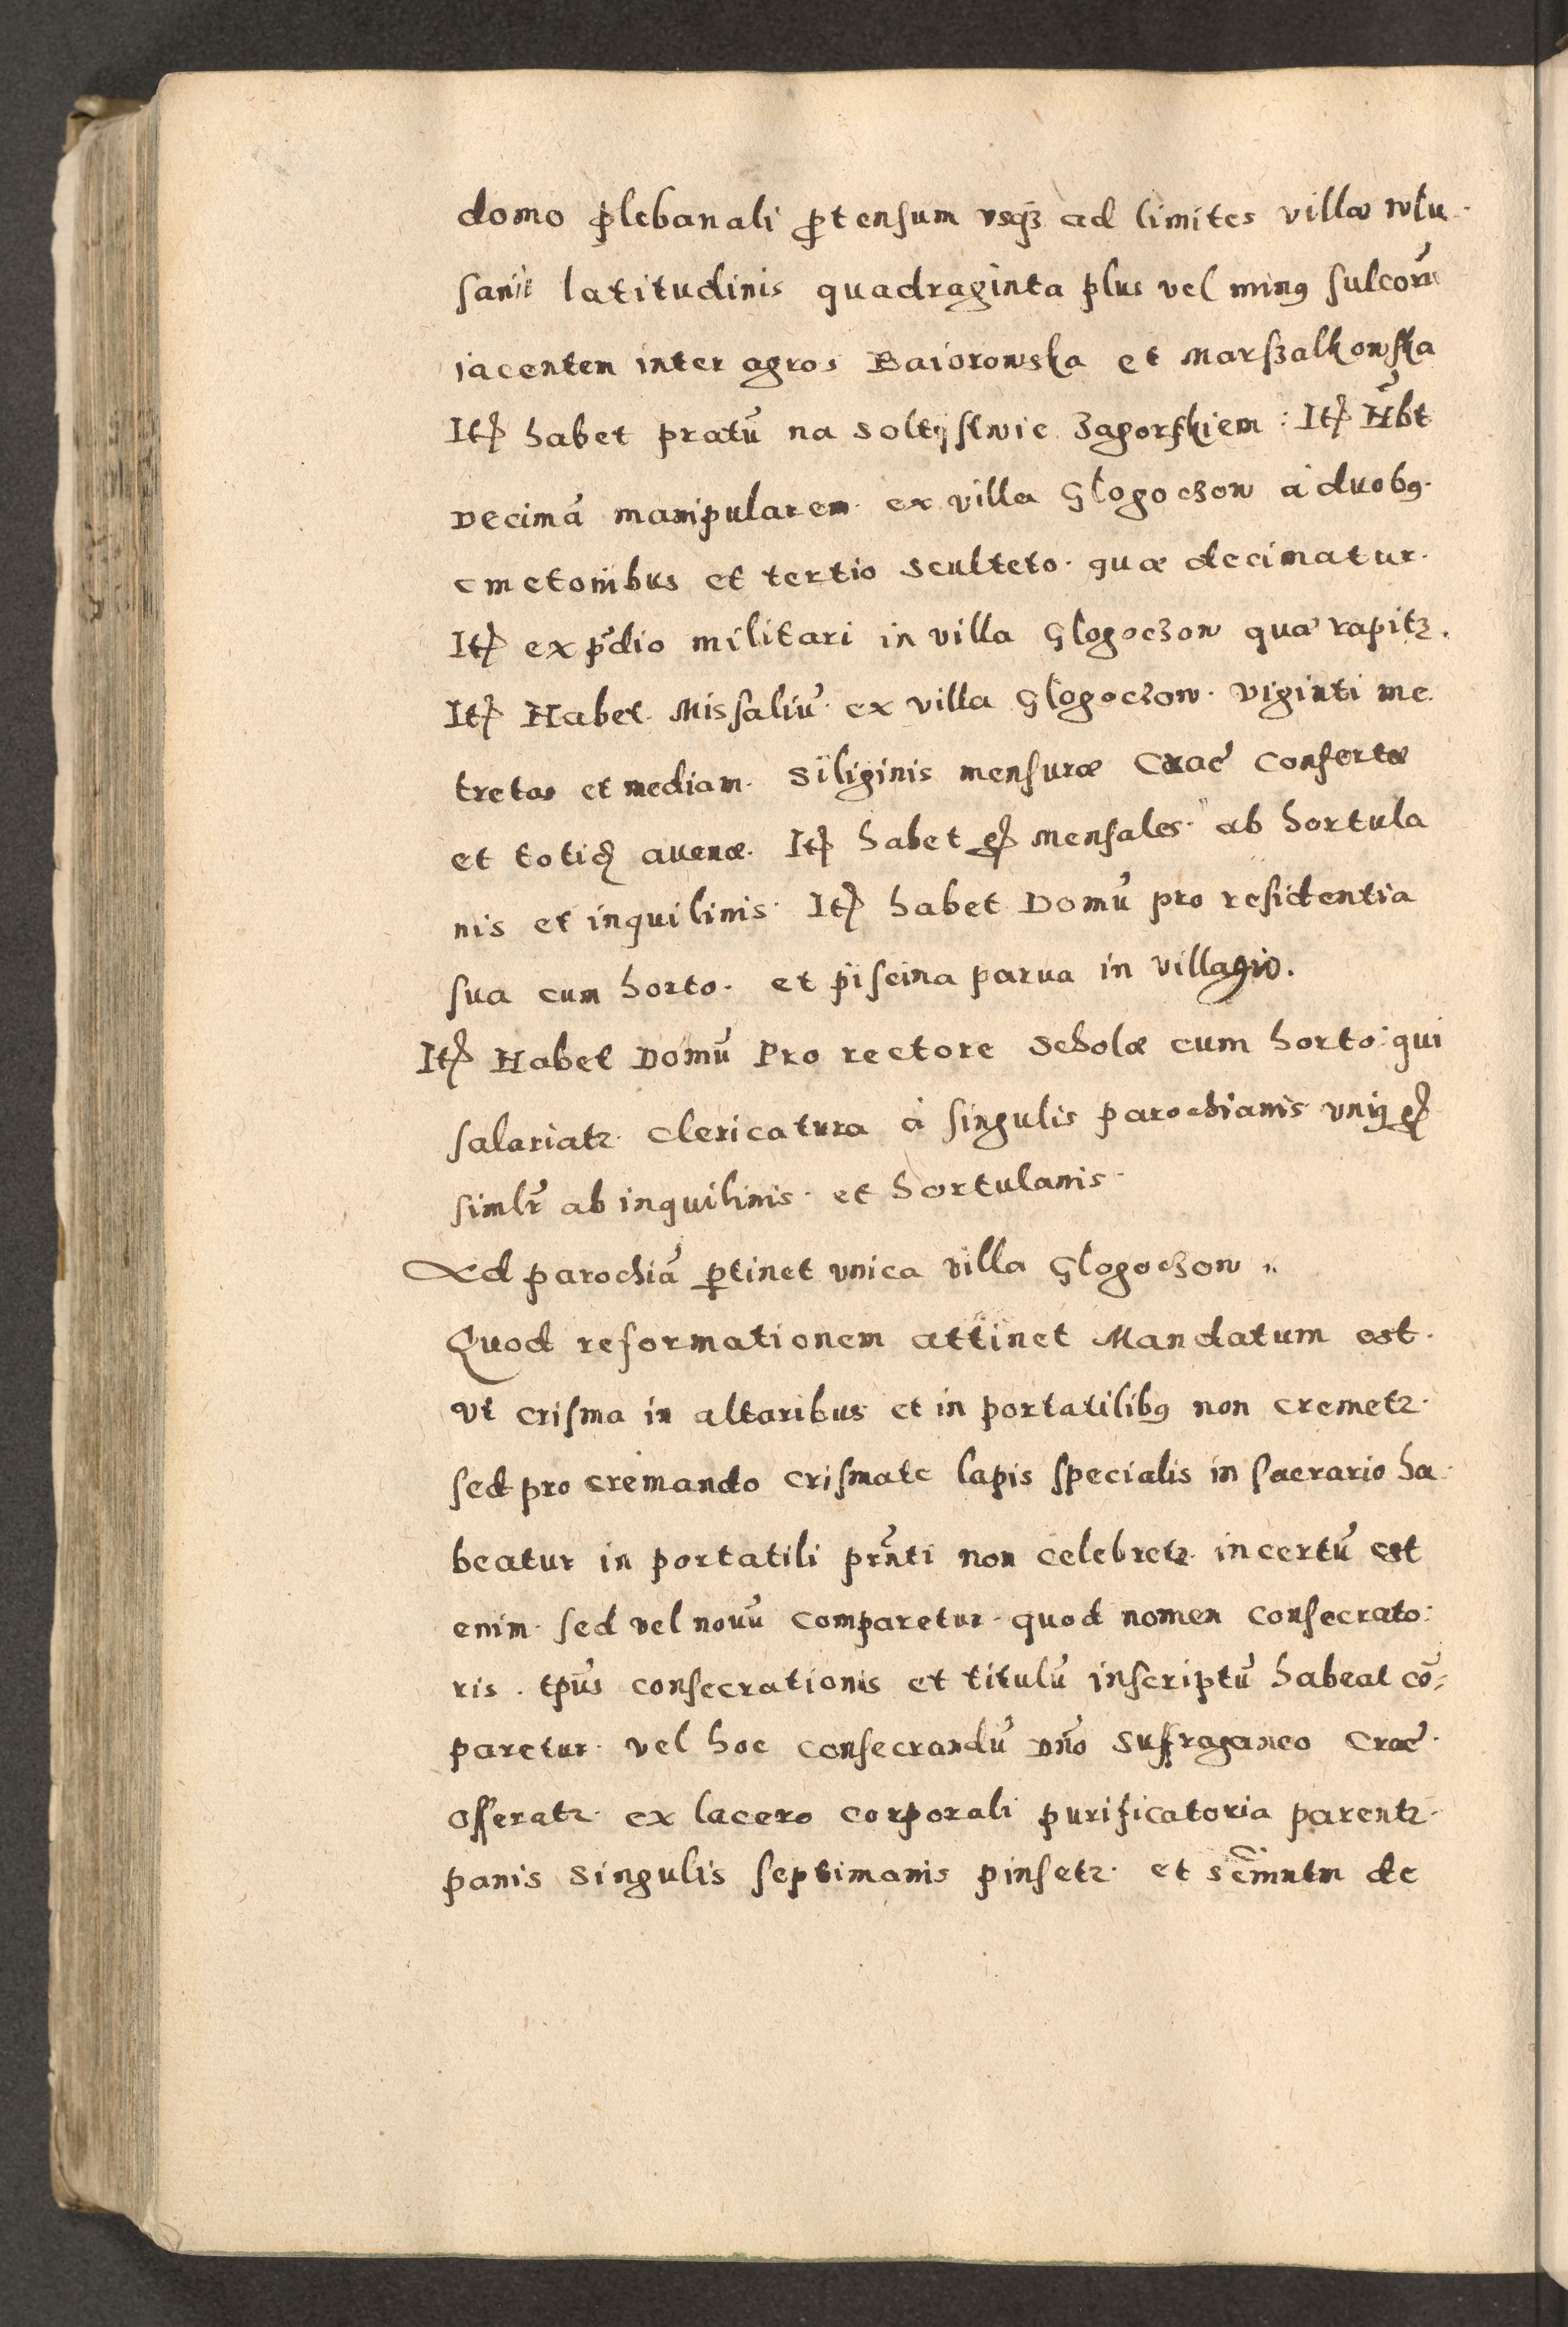 domo plebanali ꝓtensum vsqȝ ad limites villæ wlu
sanii latitudinis quadraginta plus vel minꝰ sulcorũ
iacentem inter agros Baiorowska et Marszalkowska
Itẽ habet pratũ na soltÿstwie Zagorskiem: Itẽ Hb̃t
Decimã manipularem ex villa Glogoczow à duobꝰ
cmetonibus et tertio sculteto. quæ decimatur.
Itẽ ex p̃dio militari in villa Glogoczow quæ rapitꝛ.
Itẽ Habet Missaliũ ex villa Glogoczow. viginti me
tretas et mediam. Siliginis mensuræ Crac̃ confertæ
et totidẽ auenæ. Itẽ habet mensales ab hortula
nis et inquilinis. Itẽ habet Domũ pro residentia
sua cum horto. et piscina parua in villagio.
Itẽ Habet Domũ Pro rectore scholæ cum horto: qui
salariatꝛ. clericatura à singulis parochianis
simlr̃ ab inquilinis. et hortulanis.
Ad parochiã ꝑtinet vnica villa Glogoczow
Quod reformationem attinet Mandatum est.
Vt crisma in altaribus et in portatilibꝰ non cremetꝛ.
sed pro cremando crismate lapis specialis in sacrario ha
beatur in portatili pñti non celebretꝛ. incertũ est
enim. sed vel nouũ comparetur. quod nomen consecrato:
ris. tp̃us consecrationis et titulũ inscriptũ habeat cõ
paretur. vel hoc consecrandũ Dño Suffraganeo Crac̃.
offeratꝛ. ex lacero corporali purificatoria parentꝛ.
panis singulis septimanis pinsetꝛ. et de